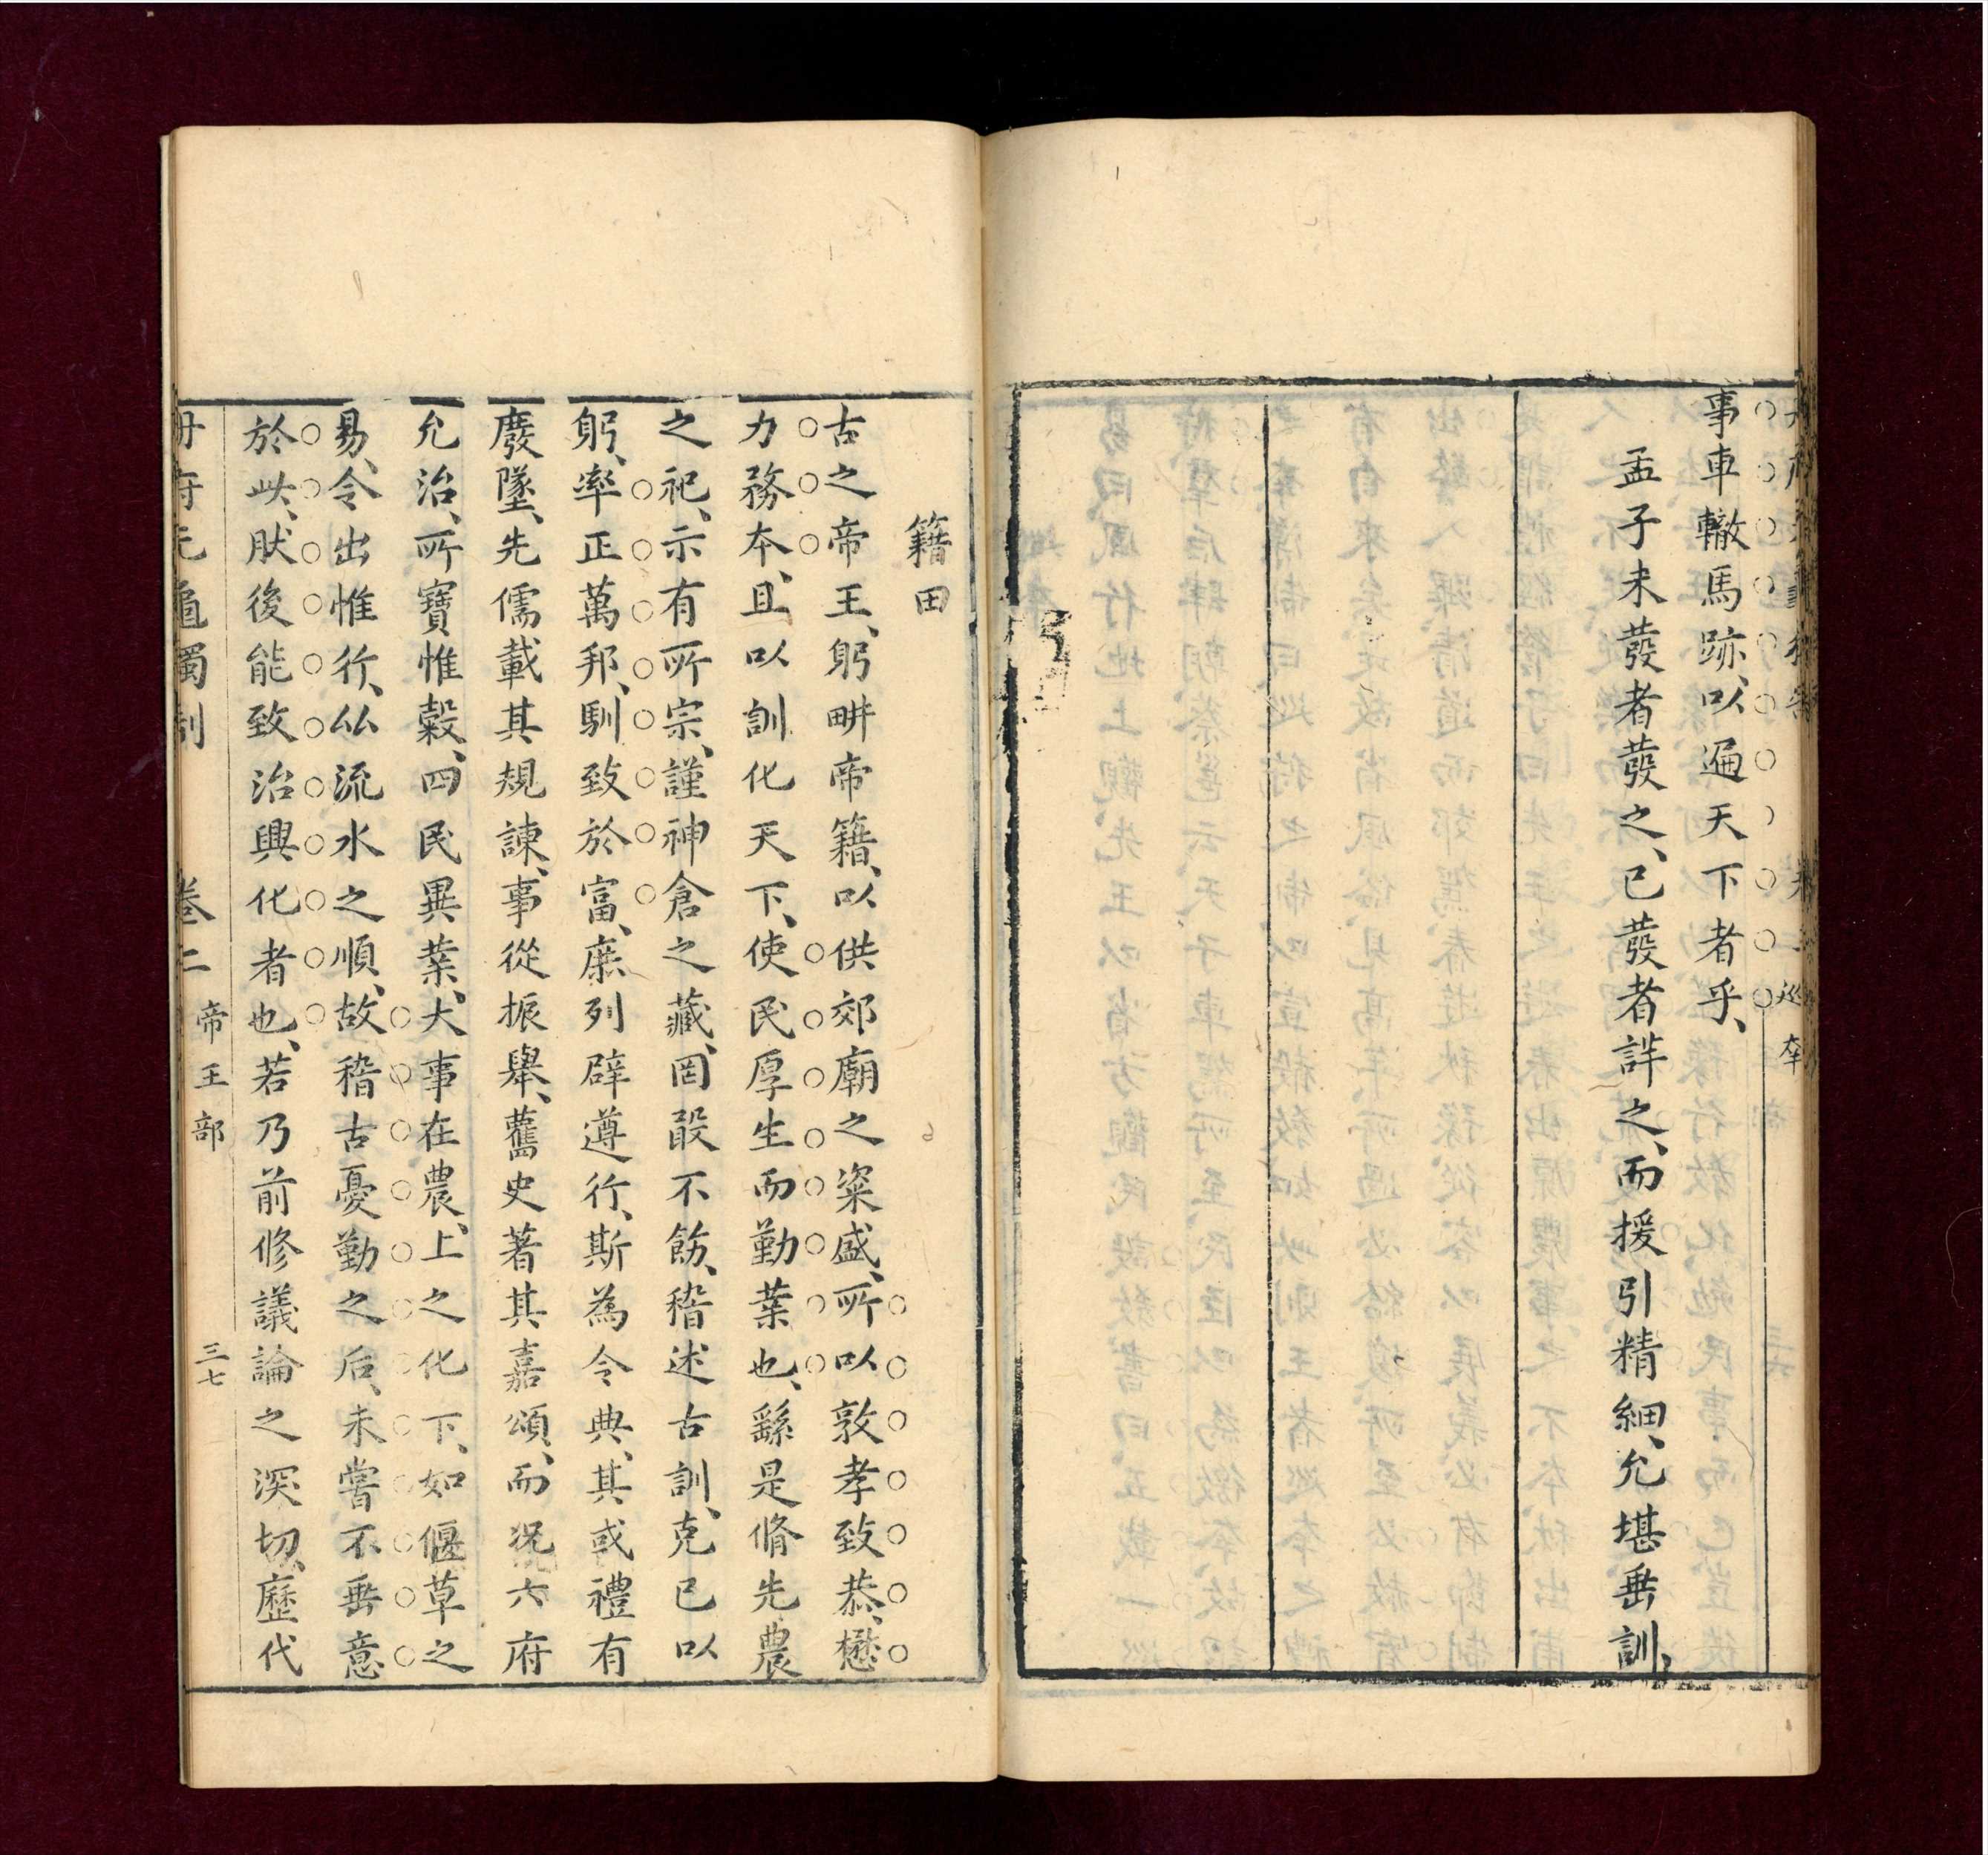 事車轍馬跡、以遍天下者乎、
孟子未發者發之、已發者詳之、而援引精細、允堪垂訓、
籍田
古之帝王、躬畊帝籍、以供郊廟之粢盛、所以敦孝致恭、懋
力務本、且以訓化天下、使民厚生而勤業也、繇是脩先農
之祀、示有所宗、謹神倉之藏、罔敢不飭、稽述古訓、克已以
躬、率正萬邦、馴致於富、庶列辟遵行、斯為令典、其或禮有
廢墜、先儒載其規諫、事從振舉、舊史著其嘉頌、而況六府
允治、所寶惟穀、四民異業、大事在農、上之化下、如偃草之
易、令出惟行、仏流水之順、故稽古憂勤之后、未嘗不垂意
於此、肰後能致治興化者也、若乃前修議論之深切、歷代
冊府元龜獨制 卷二 帝王部 三七